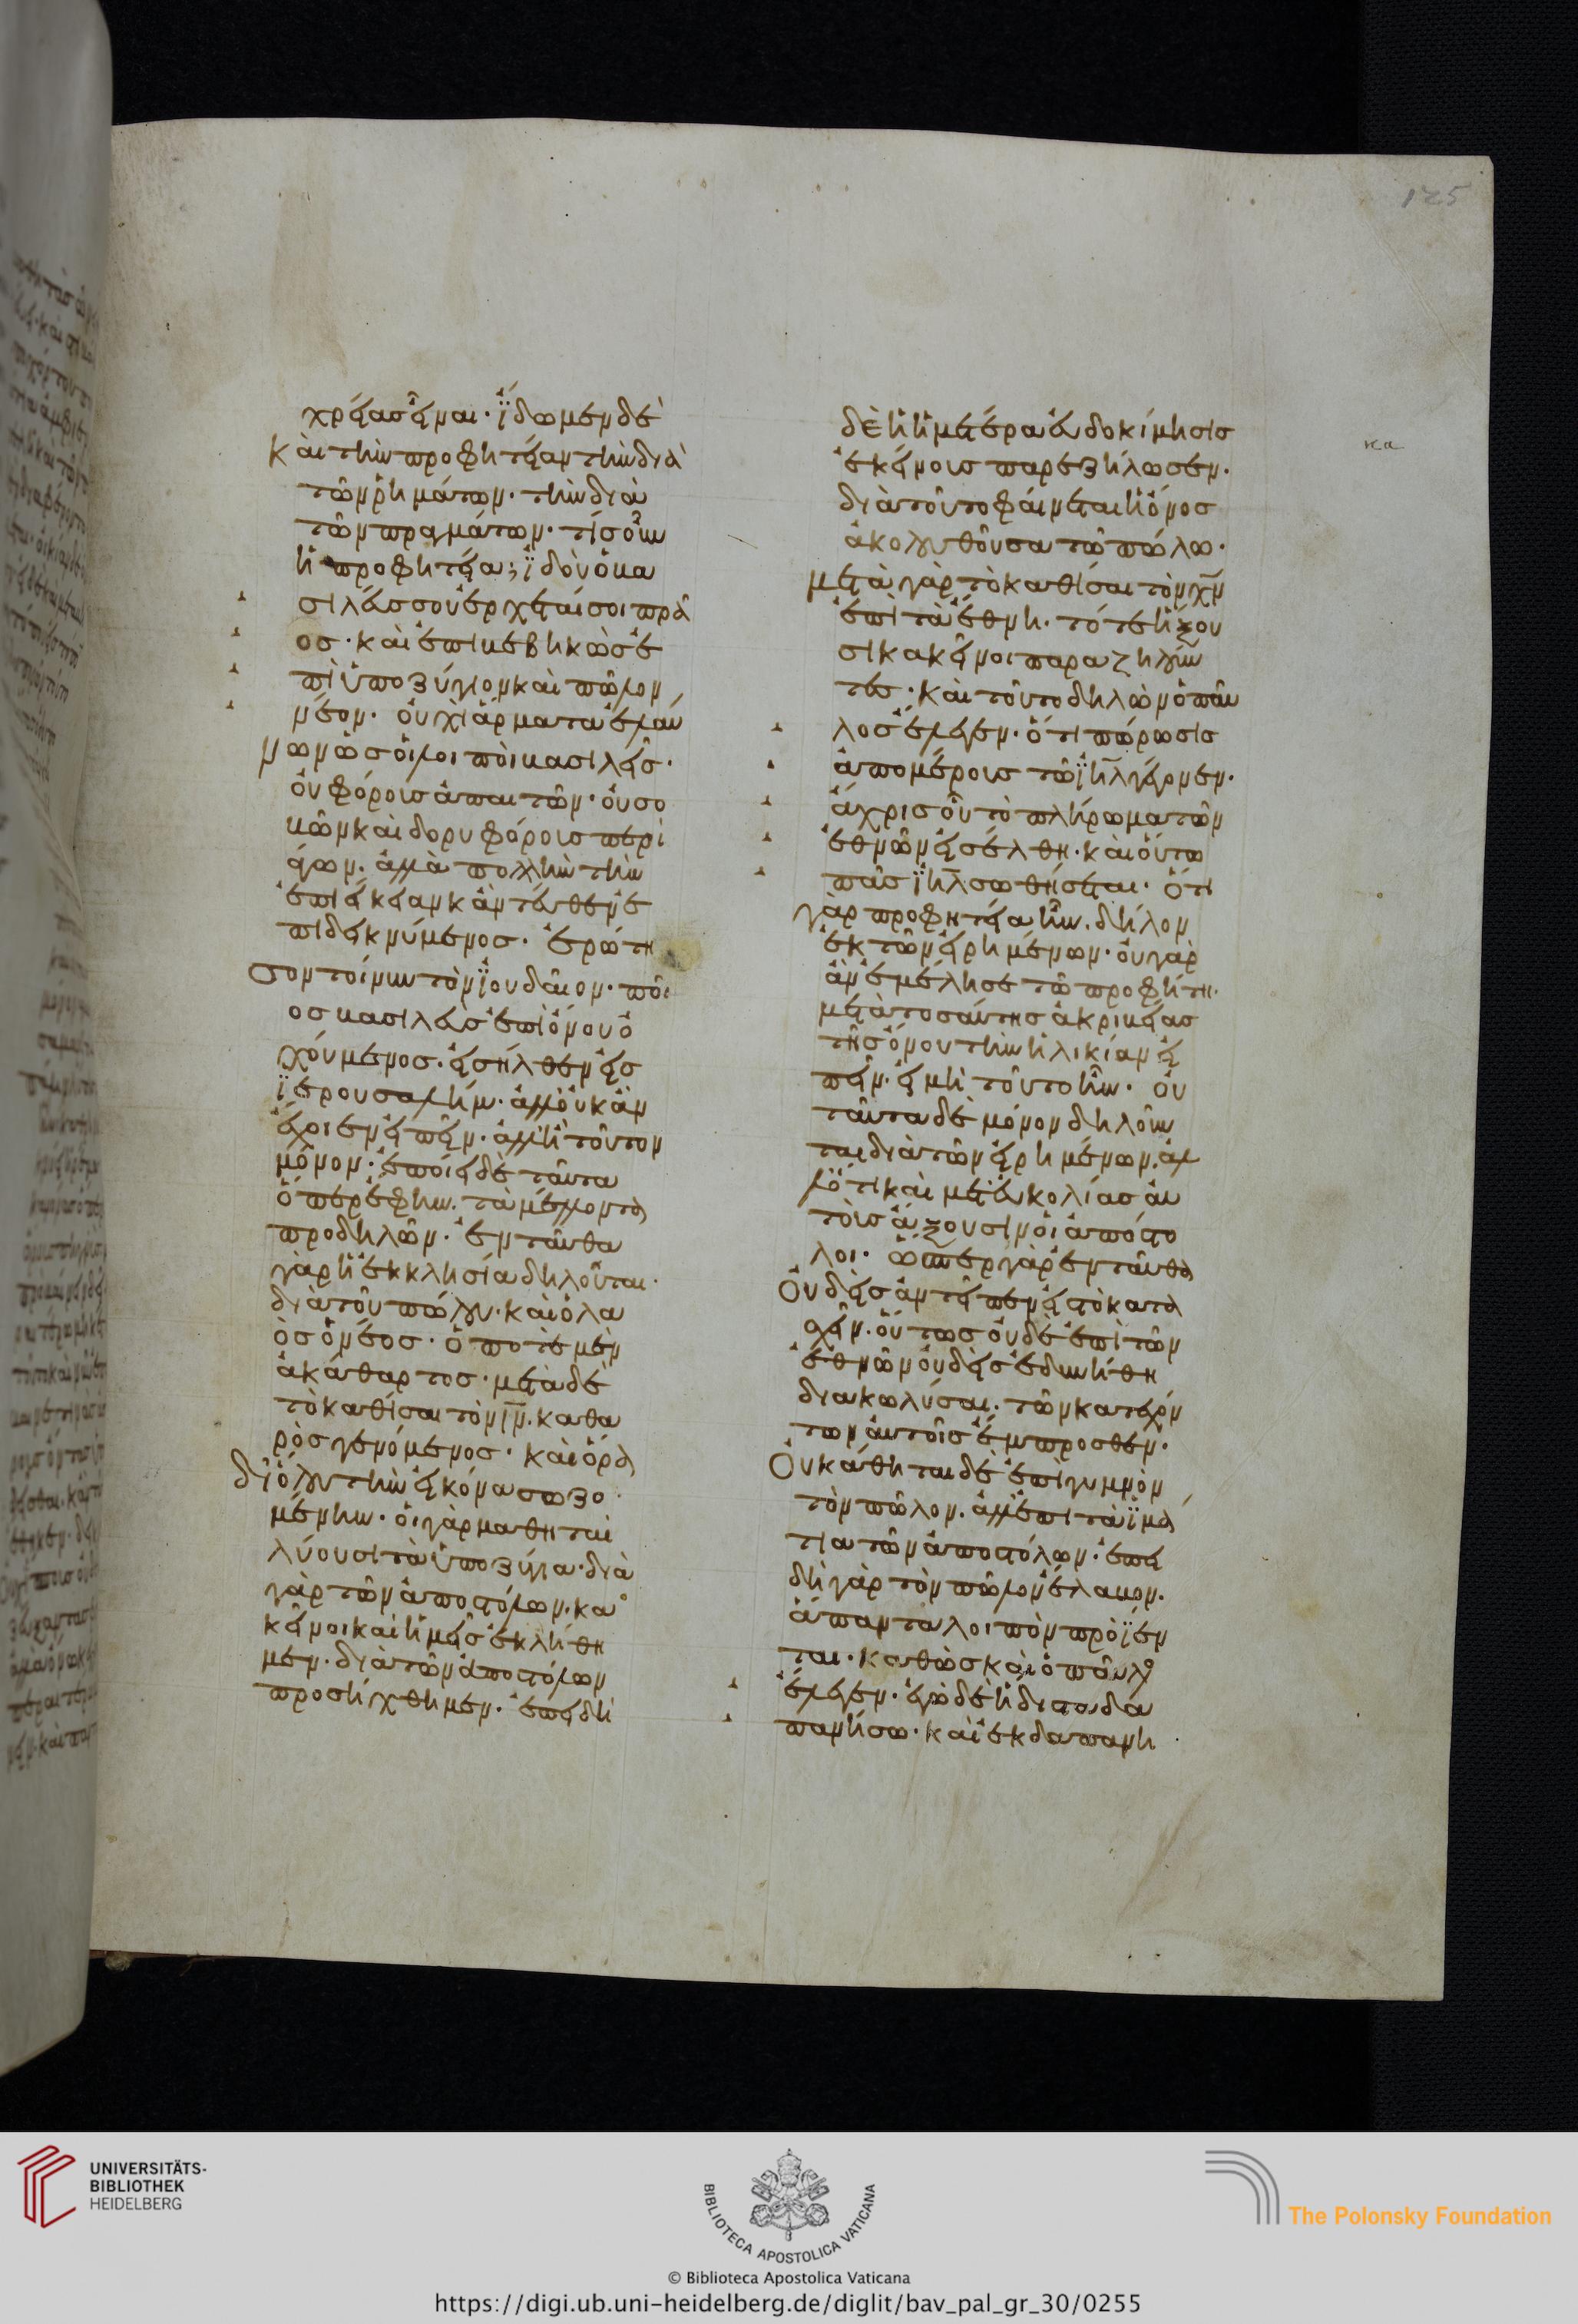 χρείας εἶναι. ἴδωμεν δὲ
καὶ τὴν προφητείαν τὴν διὰ
τῶν ῥημάτων. τὴν διὰ
τῶν πραγμάτων. τίς οὖν
ἡ προφητεία; ἰδοὺ ὁ βα
σιλεύς σου ἔρχεταί σοι πρᾶ
ος. καὶ ἐπιβεβηκὼς ἐ
πὶ ὑποζύγιον καὶ πῶλον
νέον. οὐχὶ ἅρματα ἐλαύ
νων ὡς οἱ λοιποὶ βασιλεῖς.
οὐ φόρους ἀπαιτῶν. οὐ σο
βῶν καὶ δορυφόρους περὶ
άγων. ἀλλὰ πολλὴν τὴν
ἐπιείκειαν κἀντεῦθεν ἐ
πιδεικνύμενος. ἐρώτη
σον τοίνυν τὸν ἰουδαῖον. ποῖ
ος βασιλεὺς ἐπὶ ὄνου ὀ
χούμενος. εἰσῆλθεν εἰς
ἱερουσαλήμ. ἀλλ' οὐκ ἂν
ἔχοιεν εἰπεῖν. ἀλλ' ἢ τοῦτον
μόνον. ἐποίει δὲ ταῦτα
ὅπερ ἔφην. τὰ μέλλοντα
προδηλῶν. ἐνταῦθα
γὰρ ἡ ἐκκλησία δηλοῦται.
διὰ τοῦ πώλου. καὶ ὁ λα
ὸς ὁ νέος. ὁ ποτὲ μὲν
ἀκάθαρτος. μετὰ δὲ
τὸ καθίσαι τὸν ιν. καθα
ρὸς γενόμενος. καὶ ὅρα
δι' ὅλου τὴν εἰκόνα σωζο
μένην. οἱ γὰρ μαθηταὶ
λύουσι τὰ ὑποζύγια. διὰ
γὰρ τῶν ἀποστόλων. κα
κεῖνοι καὶ ἡμεῖς ἐκλήθη
μεν. διὰ τῶν ἀποστόλων
προσήχθημεν. ἐπειδὴ
δὲ ἡ ἡμετέρα εὐδοκίμησις
ἐκείνους παρεζήλωσεν.
διὰ τοῦτο φαίνεται ἡ ὄνος
ἀκολουθοῦσα τῶ πώλω.
μετὰ γὰρ τὸ καθίσαι τὸν χν
ἐπὶ τὰ ἔθνη. τότε ἥξου
σι κακεῖνοι παραζηλοῦν
τες. καὶ τοῦτο δηλῶν ὁ παῦ
λος ἔλεγεν. ὅτι πώρωσις
ἀπομέρους τῶ ἰηλ γέγονεν.
ἄχρις οὗ τὸ πλήρωμα τῶν
ἐθνῶν εἰσέλθη. καὶ οὕτω
πᾶς ἰηλ σωθήσεται. ὅτι
γὰρ προφητεία ἦν. δῆλον
ἐκ τῶν εἰρημένων. οὐ γὰρ
ἂν ἐμέλησε τῶ προφήτη.
μετὰ τοσαύτης ἀκριβείας
τῆς ὄνου τὴν ἡλικίαν εἰ
πεῖν. εἰ μὴ τοῦτο ἦν. οὐ
ταῦτα δὲ μόνον δηλοῦν
ται διὰ τῶν εἰρημένων. ἀλ
λ' ὅτι καὶ μετ' εὐκολίας αὐ
τοὺς ἄξουσιν οἱ ἀπόστο
λοι. ὥσπερ γὰρ ἐνταῦθα
Οὐδεὶς ἀντεῖπεν εἰς τὸ κατα
σχεῖν. οὕτως οὐδὲ ἐπὶ τῶν
ἐθνῶν οὐδεὶς ἐδυνήθη
διακωλύσαι. τῶν κατεχόν
των αὐτοὺς ἔμπροσθεν.
Οὐ κάθηται δὲ ἐπὶ γυμνὸν
τὸν πῶλον. ἀλλ' ἐπὶ τὰ ἱμά
τια τῶν ἀποστόλων. ἐπει
δὴ γὰρ τὸν πῶλον ἔλαβον.
ἅπαντα λοιπὸν προΐεν
ται. καθὼς καὶ ὁ παῦλος
ἔλεγεν. ἐγὼ δὲ ἥδιστα δα
πανήσω. καὶ ἐκδαπανη
125
κα
UNIVERSITÄTS-
BIBLIOTHEK
HEIDELBERG
BIBLIOTECA APOSTOLICA VATICANA
© Biblioteca Apostolica Vaticana
The Polonsky Foundation
https://digi.ub.uni-heidelberg.de/diglit/bav_pal_gr_30/0255